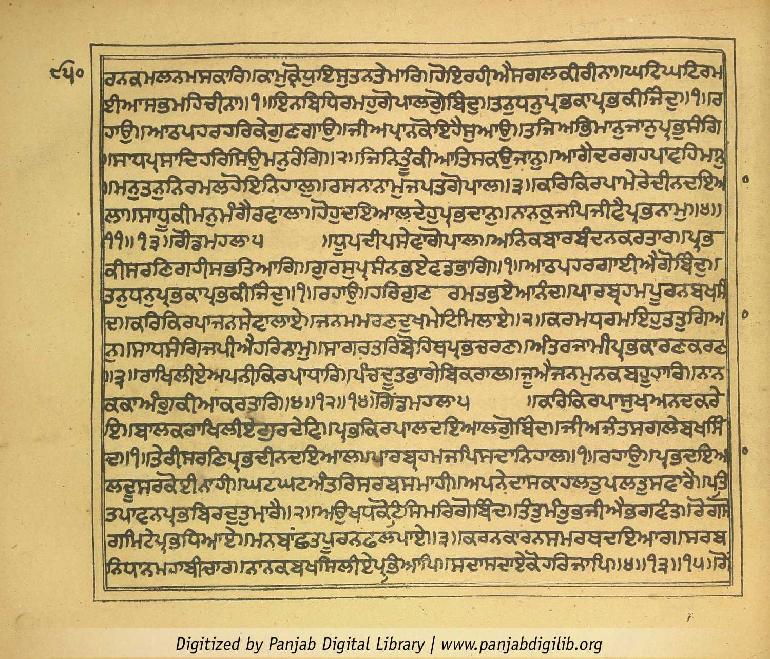 ੮੫੦
ਰਨਕਮਲਨਮਸਕਾਰਿ॥ਕਾਮੁਕ੍ਰੋਧੁਇਸੁਤਨਤੇਮਾਰਿ॥ਹੋਇਰਹੀਐਸਗਲਕੀਰੀਨਾ॥ਘਟਿਘਟਿਰਮ
ਈਆਸਭਮਹਿਚੀਨਾ॥੧॥ਇਨਬਿਧਿਰਮਹੁਗੋਪਾਲਗੋਬਿੰਦੁ॥ਤਨੁਧਨੁਪ੍ਰਭਕਾਪ੍ਰਭਕੀਜਿੰਦੁ॥੧॥ਰ
ਹਾਉ॥ਆਠਪਹਰਹਰਿਕੇਗੁਣਗਾਉ॥ਜੀਅਪ੍ਰਾਨਕੋਇਹੈਸੁਆਉ॥ਤਜਿਅਭਿਮਾਨੁਜਾਨੁਪ੍ਰਭੁਸੰਗਿ
॥ਸਾਧਪ੍ਰਸਾਦਿਹਰਿਸਿਉਮਨੁਰੰਗਿ॥੨॥ਜਿਨਿਤੂੰਕੀਆਤਿਸਕਉਜਾਨੁ॥ਆਗੈਦਰਗਹਪਾਵਹਿਮਾਨੁ
॥ਮਨੁਤਨੁਨਿਰਮਲਹੋਇਨਿਹਾਲੁ॥ਰਸਨਾਨਾਮੁਜਪਤਗੋਪਾਲ॥੩॥ਕਰਿਕਿਰਪਾਮੇਰੇਦੀਨਦਇਆ
ਲਾ॥ਸਾਧੂਕੀਮਨੁਮੰਗੈਰਵਾਲਾ॥ਹੋਹੁਦਇਆਲਦੇਹੁਪ੍ਰਭਦਾਨੁ॥ਨਾਨਕੁਜਪਿਜੀਵੈਪ੍ਰਭਨਾਮੁ॥੪॥
੧੧॥੧੩॥ਗੋਂਡਮਹਲਾ੫ ॥ਧੂਪਦੀਪਸੇਵਾਗੋਪਾਲ॥ਅਨਿਕਬਾਰਬੰਦਨਕਰਤਾਰ॥ਪ੍ਰਭ
ਕੀਸਰਣਿਗਹੀਸਭਤਿਆਗਿ॥ਗੁਰਸੁਪ੍ਰਸੰਨਭਏਵਡਭਾਗਿ॥੧॥ਆਠਪਹਰਗਾਈਐਗੋਬਿੰਦੁ॥
ਤਨੁਧਨੁਪ੍ਰਭਕਾਪ੍ਰਭਕੀਜਿੰਦੁ॥੧॥ਰਹਾਉ॥ਹਰਿਗੁਣ ਰਮਤਭਏਆਨੰਦ॥ਪਾਰਬ੍ਰਹਮਪੂਰਨਬਖਸੰ
ਦ॥ਕਰਿਕਿਰਪਾਜਨਸੇਵਾਲਾਏ॥ਜਨਮਮਰਣਦੁਖਮੇਟਿਮਿਲਾਏ॥੨॥ਕਰਮਧਰਮਇਹੁਤਤੁਗਿਆ
ਨੁ॥ਸਾਧਸੰਗਿਜਪੀਐਹਰਿਨਾਮੁ॥ਸਾਗਰਤਰਿਬੋਹਿਥਪ੍ਰਭਚਰਣ॥ਅੰਤਰਜਾਮੀਪ੍ਰਭਕਾਰਣਕਰਣ
॥੩॥ਰਾਖਿਲੀਏਅਪਨੀਕਿਰਪਾਧਾਰਿ॥ਪੰਚਦੂਤਭਾਗੇਬਿਕਰਾਲ॥ਜੂਐਜਨਮੁਨਕਬਹੂਹਾਰਿ॥ਨਾਨ
ਕਕਾਅੰਗੁਕੀਆਕਰਤਾਰਿ॥੪॥੧੨॥੧੪॥ਗੋਂਡਮਹਲਾ੫ ॥ਕਰਿਕਿਰਪਾਸੁਖਅਨਦਕਰੇ
ਇ॥ਬਾਲਕਰਾਖਿਲੀਏਗੁਰਦੇਵਿ॥ਪ੍ਰਭਕਿਰਪਾਲਦਇਆਲਗੋੁਬਿੰਦ॥ਜੀਅਜੰਤਸਗਲੇਬਖਸਿੰ
ਦ॥੧॥ਤੇਰੀਸਰਣਿਪ੍ਰਭਦੀਨਦਇਆਲ॥ਪਾਰਬ੍ਰਹਮਜਪਿਸਦਾਨਿਹਾਲ॥੧॥ਰਹਾਉ॥ਪ੍ਰਭਦਇਆ
ਲਦੂਸਰਕੋਈਨਾਹੀ॥ਘਟਘਟਅੰਤਰਿਸਰਬਸਮਾਹੀ॥ਅਪਨੇਦਾਸਕਾਹਲਤੁਪਲਤੁਸਵਾਰੈ॥ਪਤਿ
ਤਪਾਵਨਪ੍ਰਭਬਿਰਦੁਤੁਮਾਰੈ॥੨॥ਅਉਖਧਕੋਟਿਸਿਮਰਿਗੋਬਿੰਦ॥ਤੰਤੁਮੰਤੁਭਜੀਐਭਗਵੰਤ॥ਰੋਗਸੋ
ਗਮਿਟੇਪ੍ਰਭਧਿਆਏ॥ਮਨਬਾਂਛਤਪੂਰਨਫਲਪਾਏ॥੩॥ਕਰਨਕਾਰਨਸਮਰਥਦਇਆਰ॥ਸਰਬ
ਨਿਧਾਨਮਹਾਬੀਚਾਰ॥ਨਾਨਕਬਖਸਿਲੀਏਪ੍ਰਭਿਆਪਿ॥ਸਦਾਸਦਾਏਕੋਹਰਿਜਾਪਿ॥੪॥੧੩॥੧੫॥ਗੋਂ
Digitized by Panjab Digital Library | www.panjabdigilib.org